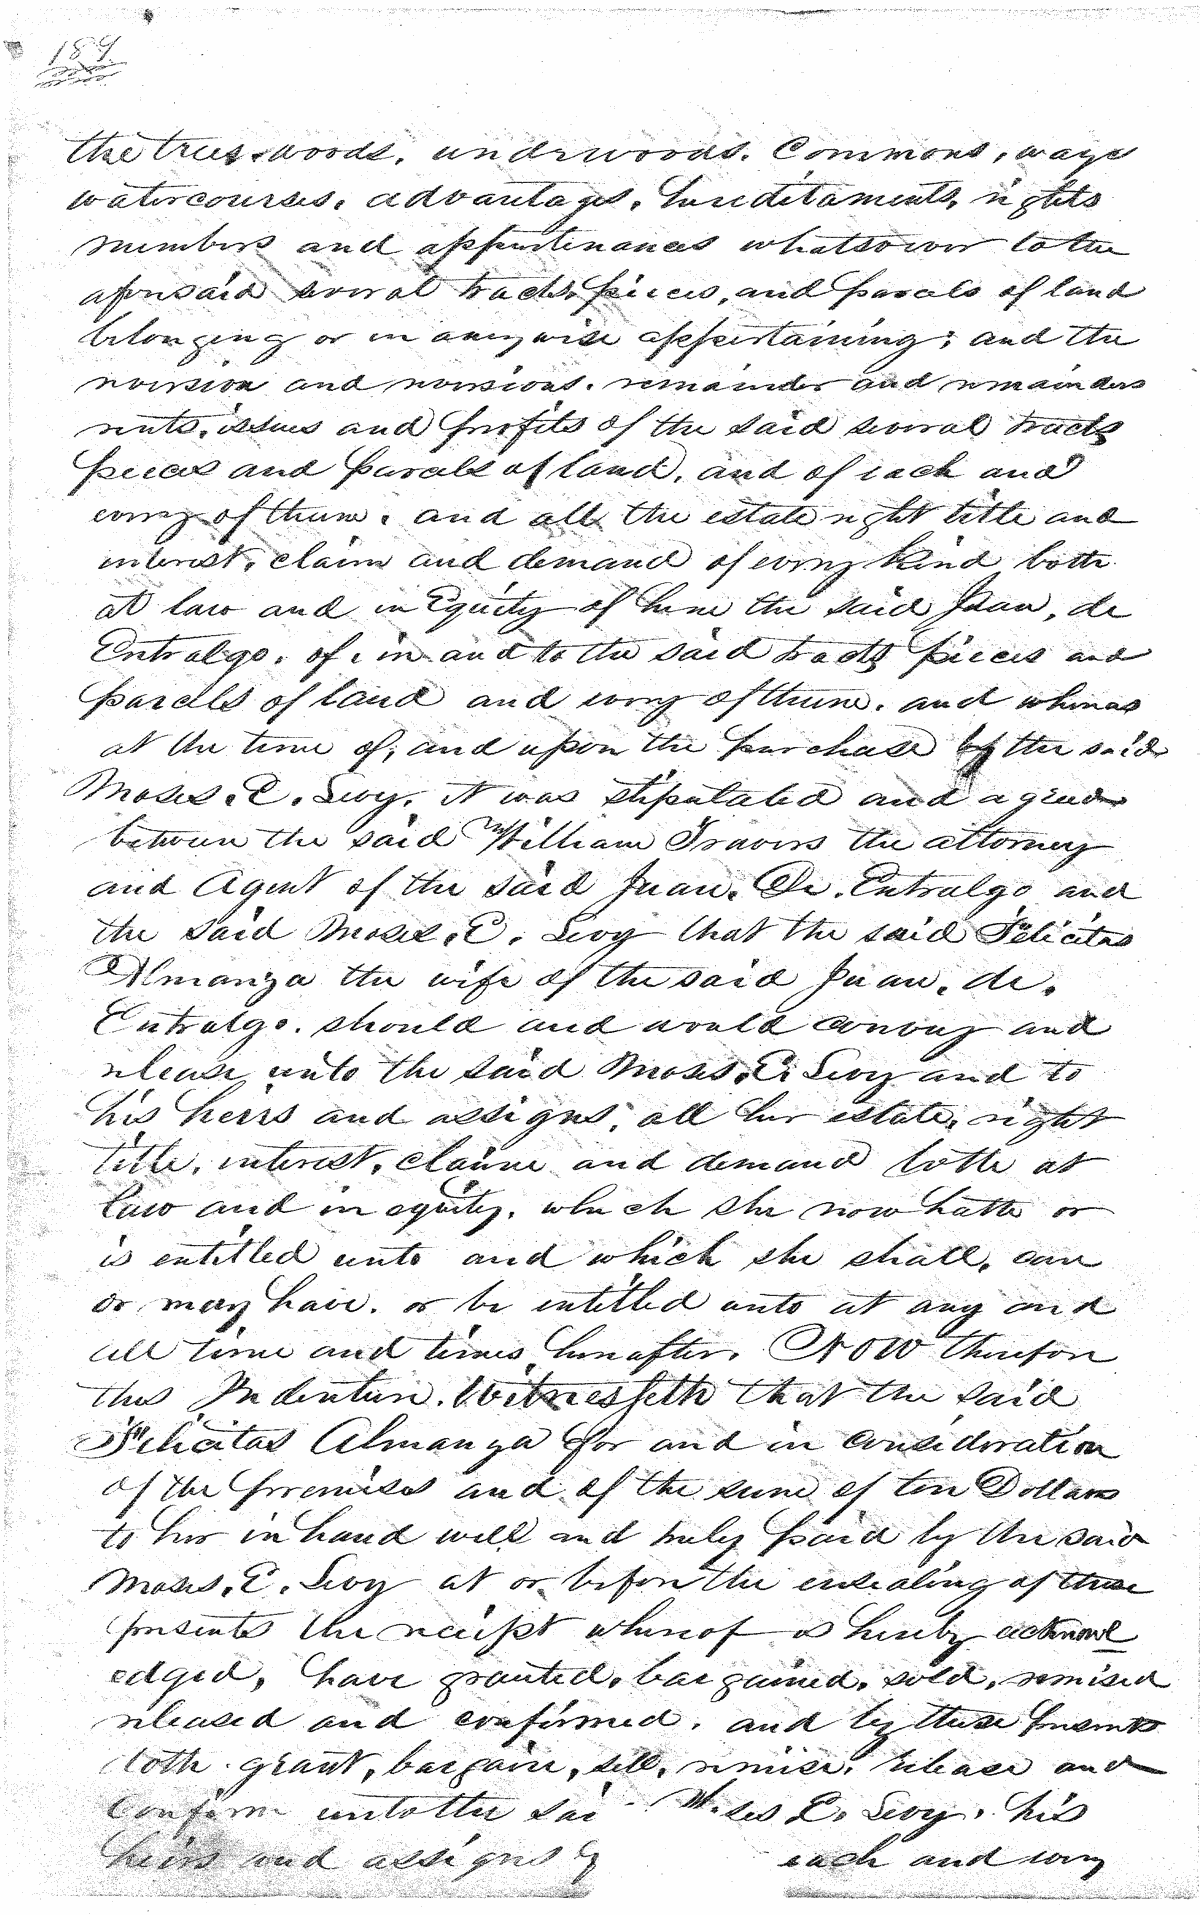 189
the trees. woods. underwoods. Commons, ways
watercourses. advantages. hereditaments, rights
members and appurtenances whatsoever to the
aforesaid several tracts, pieces, and parcels of land
belonging or in anywise appertaining; and the
reversion and reversions. remainder and remainders
rents, issues and profits of the said several tracts
pieces and parcels of land, and of each and
every of them. and all the estate right title and
interest, claim and demand of every kind both
at law and in Equity of him the said Juan, de
Entralgo. of, in and to the said tracts pieces and
parcels of land and every of them. and whereas
at the time of, and upon the purchase by the said
Moses. E. Levy. it was stipulated and agreed
between the said William Travers the attorney
and Agent of the said Juan. De. Entralgo and
the said Moses. E. Levy that the said Felicitas
Almanza the wife of the said Juan. de.
Entralgo. should and would convey and
release unto the said Moses. E. Levy and to
his heirs and assigns, all her estate, right
title, interest, claim and demand both at
law and in equity. which she now hath or
is entitled unto and which she shall, can
or may have. or be entitled unto at any and
all time and times hereafter. Now therefore
this Indenture. Witnesseth that the said
Felicitas Almanza for and in consideration
of the premises and of the sum of ten Dollars
to her in hand well and truly paid by the said
Moses. E. Levy at or before the ensealing of these
presents the receipt whereof is hereby acknowl
edged, have granted, bargained, sold, remised
released and confirmed. and by these presents
doth grant, bargain, sell, remise, release and
Confirm unto the sai Moses E. Levy. his
heirs and assigns each and every